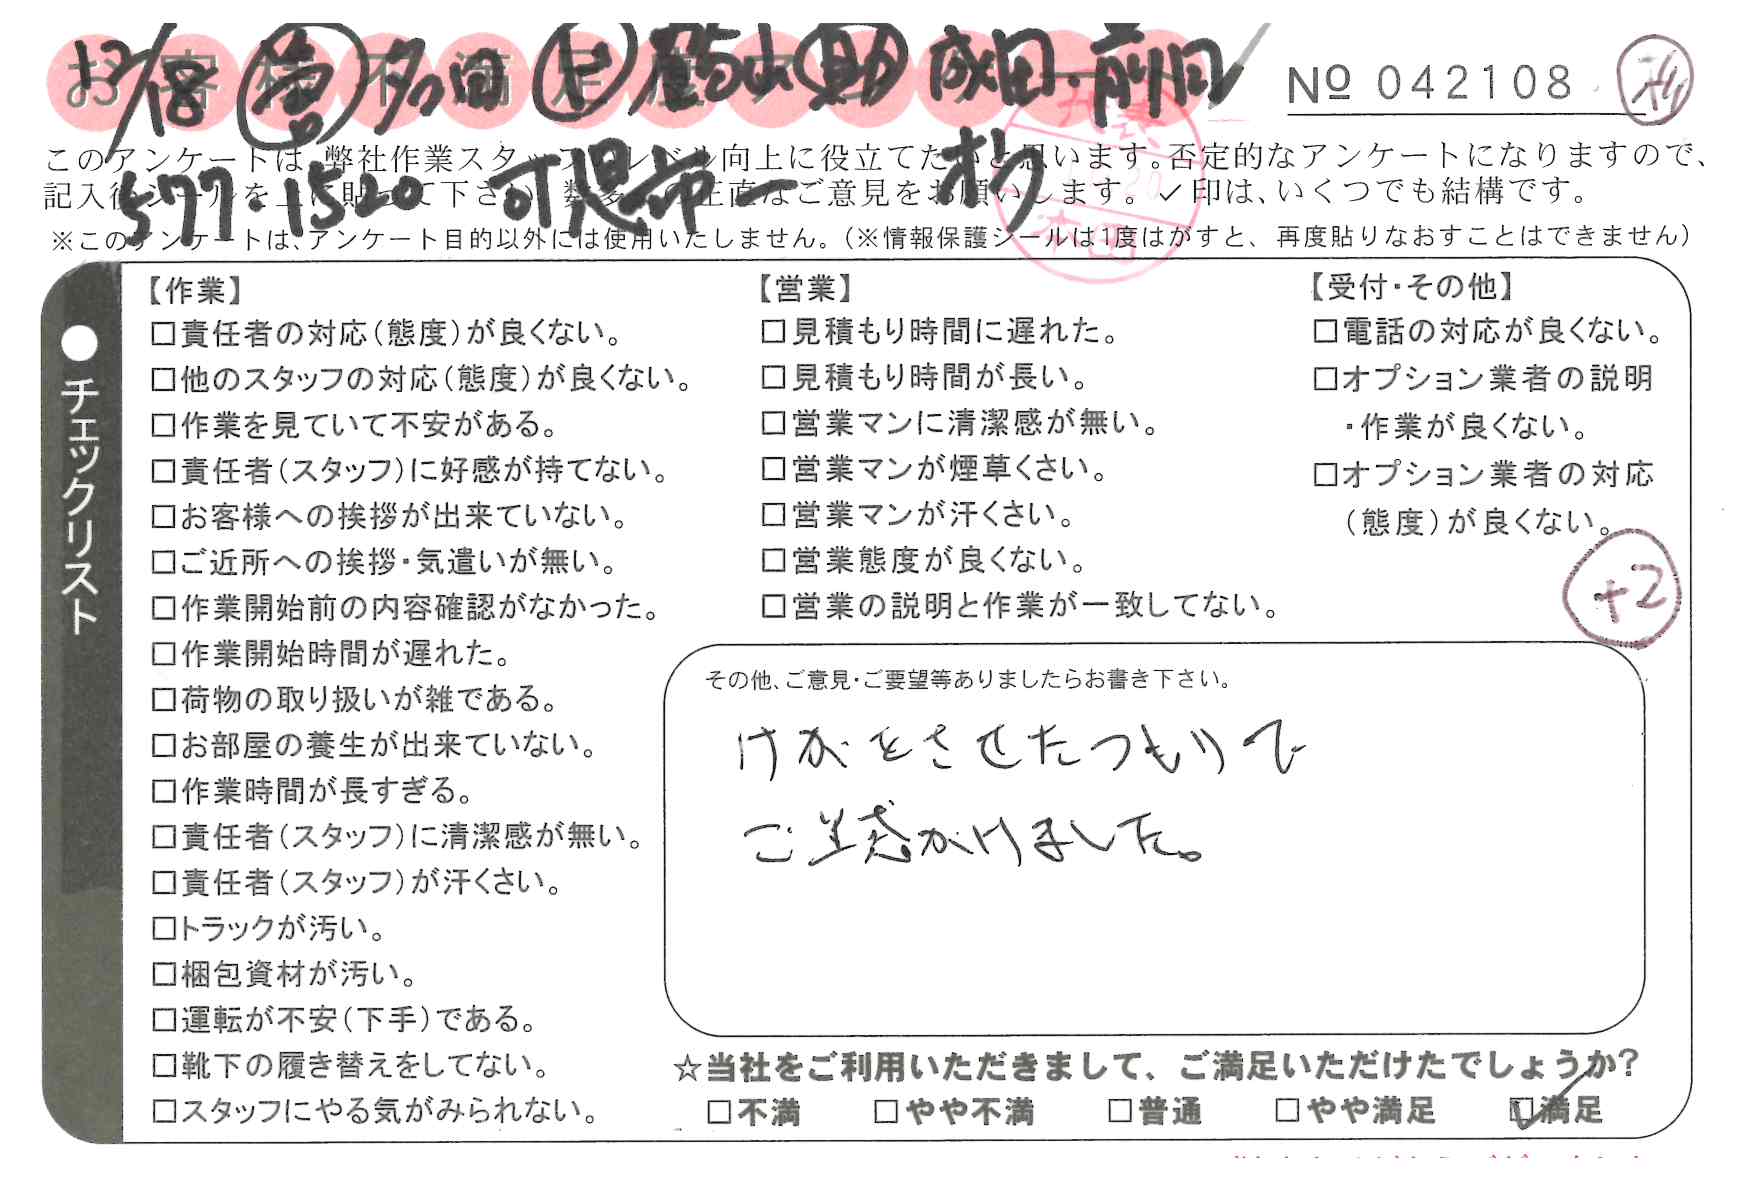 お客様不満足度アンケート
12/18 営 多田 ト 成田・前田
No 042108
このアンケートは、弊社作業スタッフのレベル向上に役立てたいと思います。否定的なアンケートになりますので、
記入後シールを上に貼って下さい。数多くの正直なご意見をお願いします。✓印は、いくつでも結構です。
577・1520 可児市→
※このアンケートは、アンケート目的以外には使用いたしません。(※情報保護シールは1度はがすと、再度貼りなおすことはできません)
●チェックリスト
【作業】
□責任者の対応(態度)が良くない。
□他のスタッフの対応(態度)が良くない。
□作業を見ていて不安がある。
□責任者(スタッフ)に好感が持てない。
□お客様への挨拶が出来ていない。
□ご近所への挨拶・気遣いが無い。
□作業開始前の内容確認がなかった。
□作業開始時間が遅れた。
□荷物の取り扱いが雑である。
□お部屋の養生が出来ていない。
□作業時間が長すぎる。
□責任者(スタッフ)に清潔感が無い。
□責任者(スタッフ)が汗くさい。
□トラックが汚い。
□梱包資材が汚い。
□運転が不安(下手)である。
□靴下の履き替えをしてない。
□スタッフにやる気がみられない。
【営業】
□見積もり時間に遅れた。
□見積もり時間が長い。
□営業マンに清潔感が無い。
□営業マンが煙草くさい。
□営業マンが汗くさい。
□営業態度が良くない。
□営業の説明と作業が一致してない。
【受付・その他】
□電話の対応が良くない。
□オプション業者の説明
・作業が良くない。
□オプション業者の対応
(態度)が良くない。
+2
その他、ご意見・ご要望等ありましたらお書き下さい。
けがをさせたつもりで
ご迷惑かけました。
☆当社をご利用いただきまして、ご満足いただけたでしょうか?
□不満 □やや不満 □普通 □やや満足 ☑満足